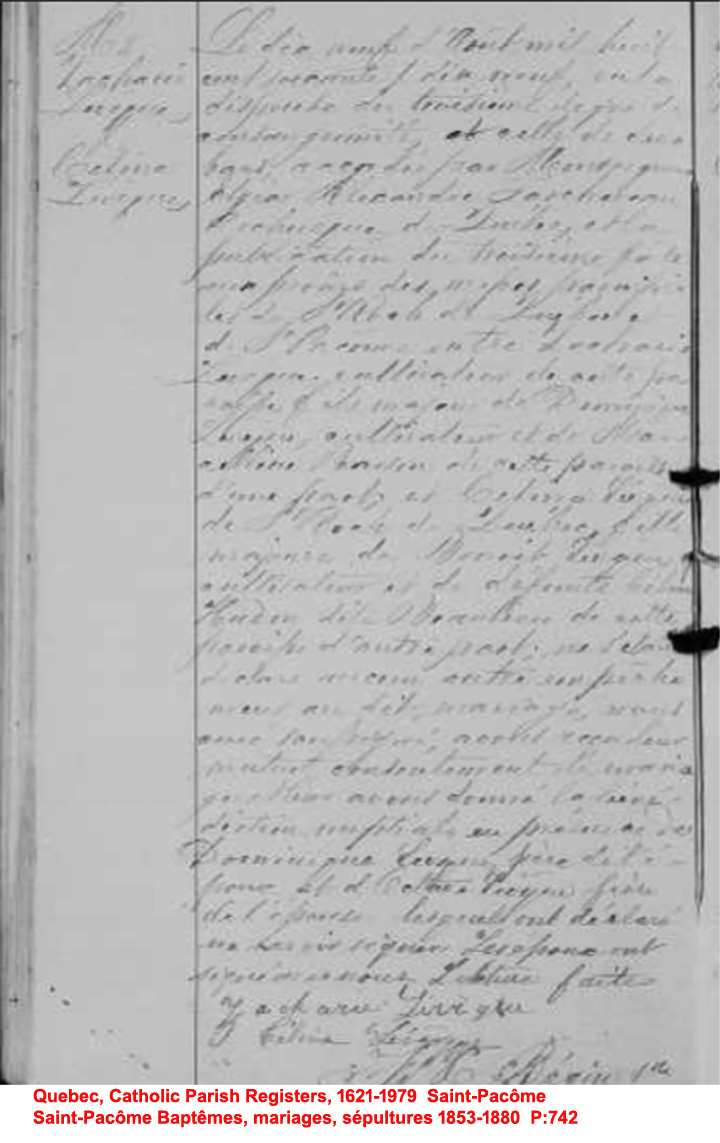 M
Zacharie
Levêque
Celina
Levêque
Le dix neuf d'Août mil huit
cent soixante & dix neuf, vu la
dispense du troisième degré de
consanguinité, et celle de deux
bans, accordée par Monseigneur
Alexandre Taschereau
Archevêque de Québec, et la
publication du troisième faite
aux prônes des messes paroissia
les de St Roch de Québec &
de St Pacôme entre Zacharie
Levêque cultivateur de cette pa
roisse fils majeur de Dominique
Levêque, cultivateur et de Marie
de cette paroisse
d'une part; et Celina Levêque
de St Roch de Québec, fille
majeure de Benoit Levêque
cultivateur et de défunte
Hudon dit Beaulieu de cette
paroisse d'autre part; ne s'étant
déclaré aucun autre empêche
ment au dit mariage, nous
curé soussigné, avons reçu leur
mutuel consentement de maria
ge & leur avons donné la béné
diction nuptiale en présence de
Dominique Levêque, père de l'é-
poux et d'Octave Levêque frère
de l'épouse lesquels ont déclaré
ne savoir signer. Les époux ont
signé avec nous. Lecture faite
Zacharie Levêque
Célina Levêque
Bégin Ptre
Quebec, Catholic Parish Registers, 1621-1979 Saint-Pacôme
Saint-Pacôme Baptêmes, mariages, sépultures 1853-1880 P:742